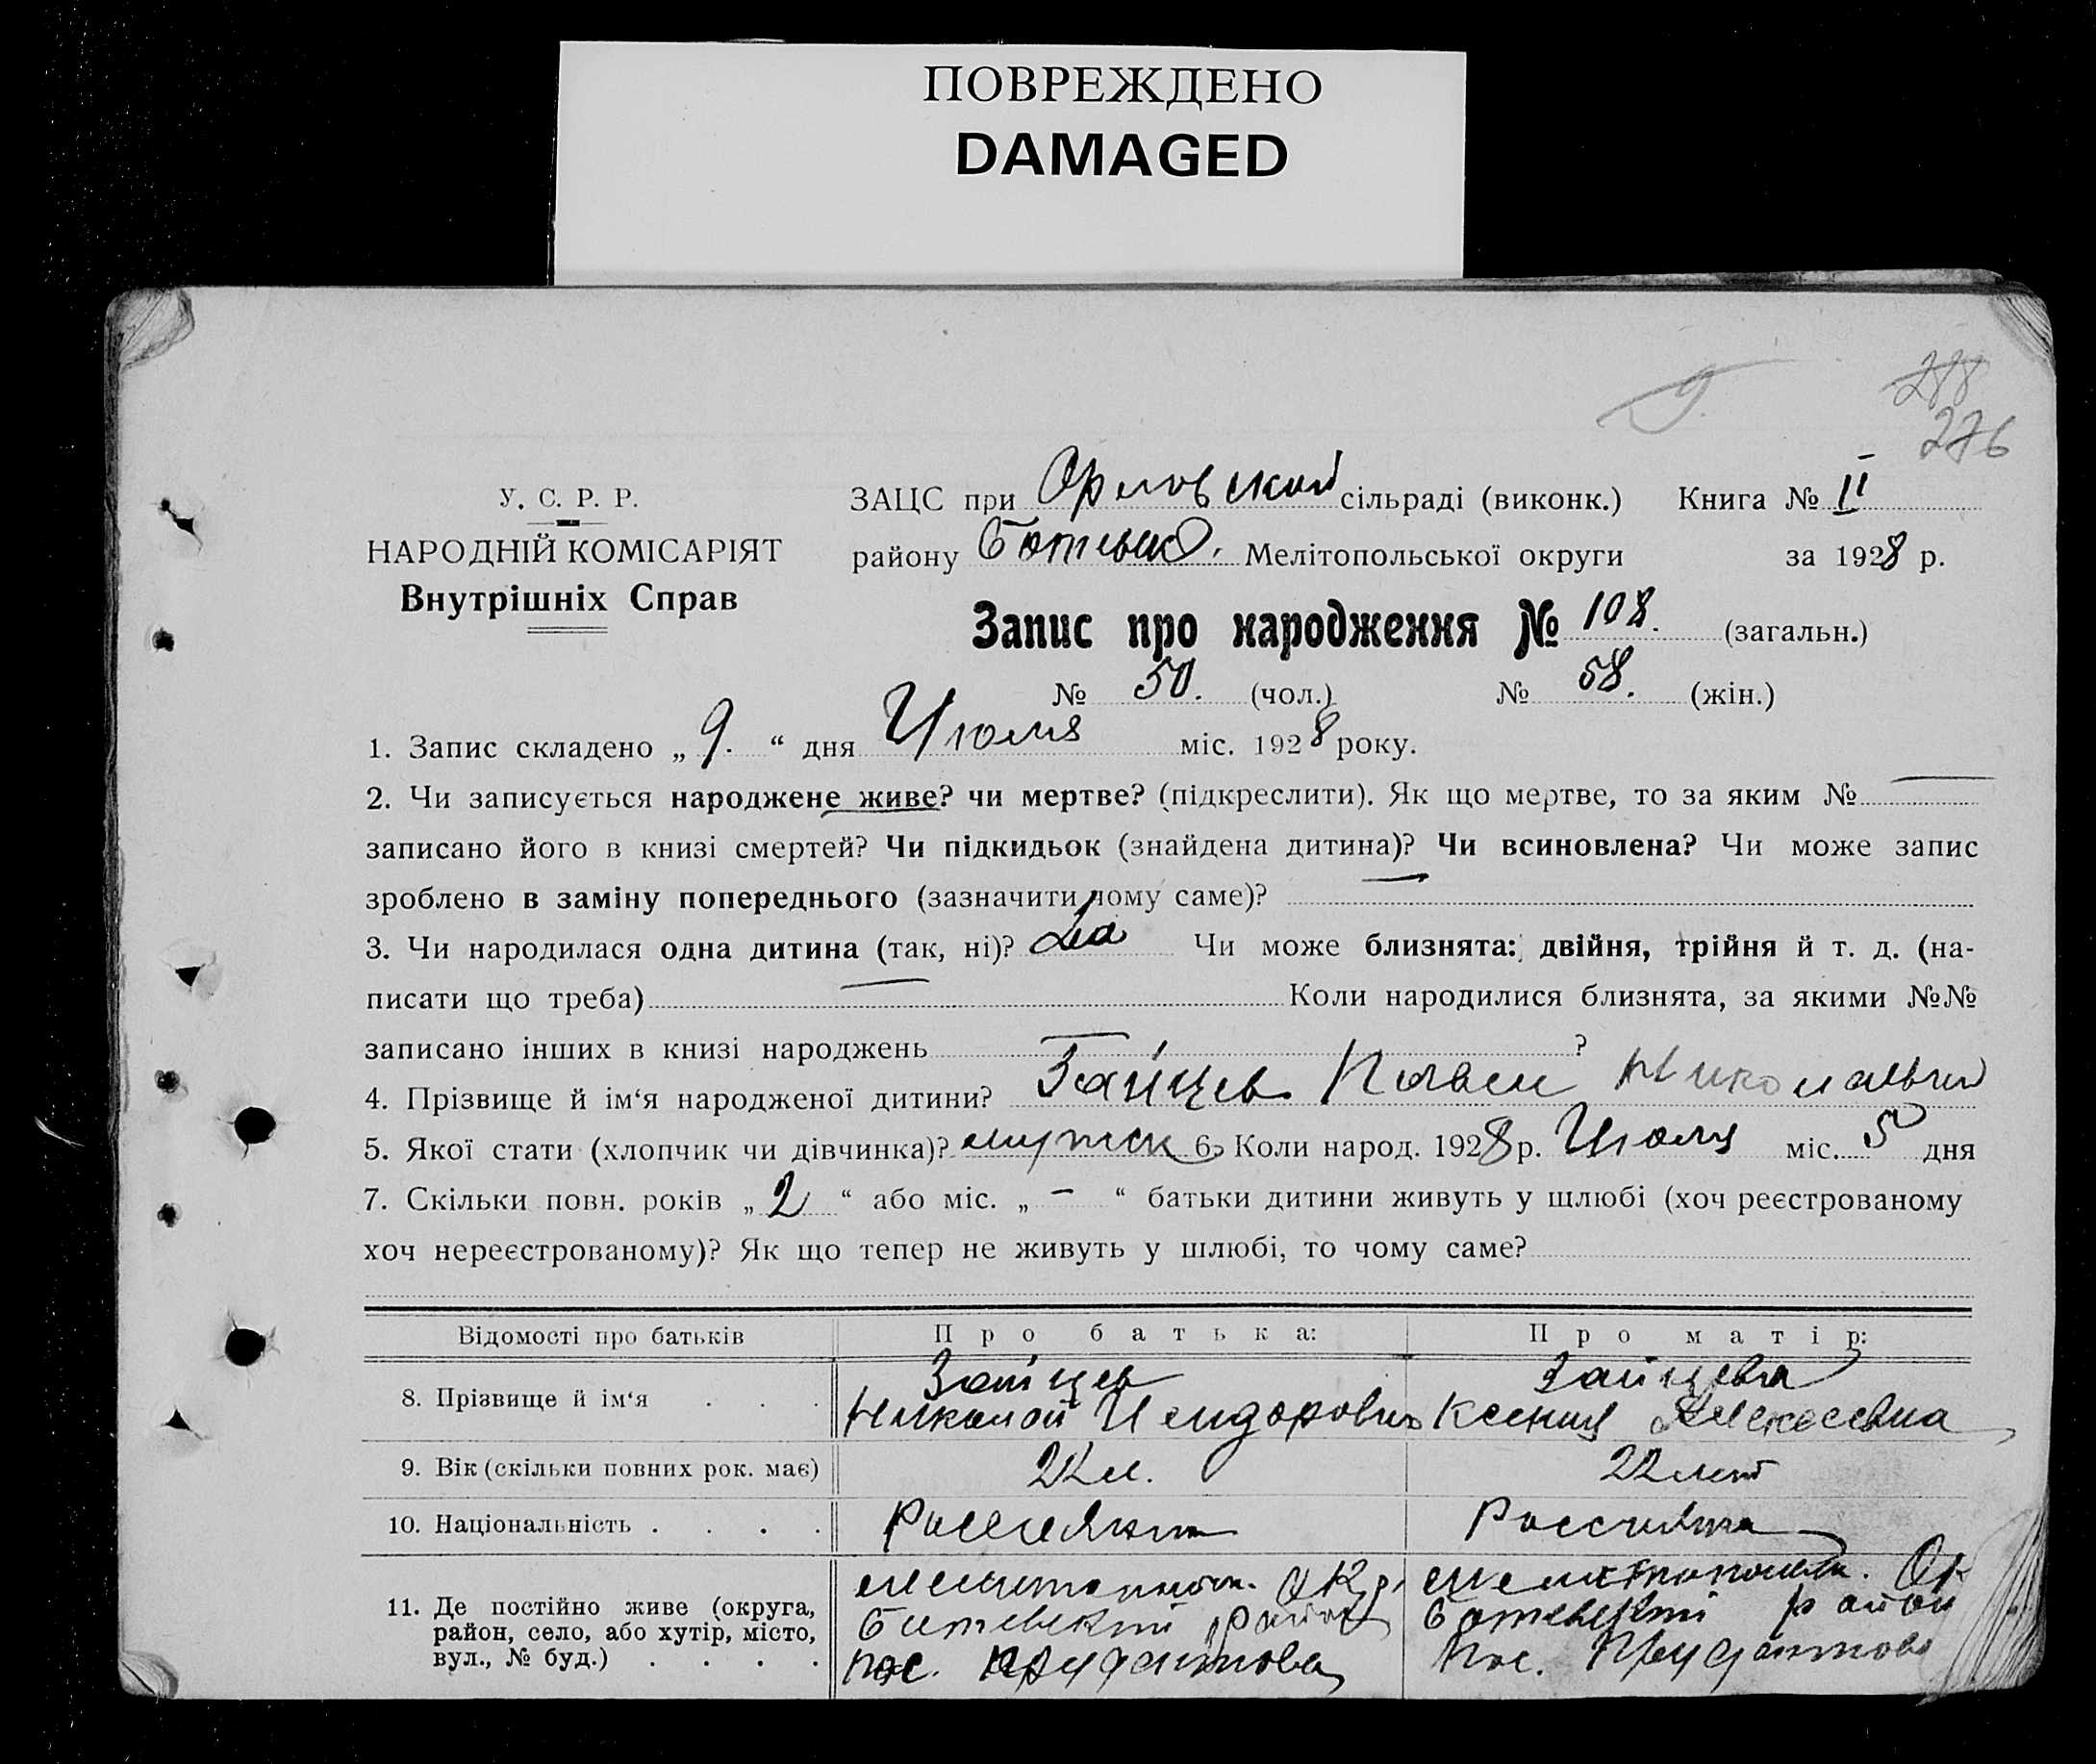 ПОВРЕЖДЕНО
DAMAGED
9.
276
У. С. Р. Р.
НАРОДНІЙ КОМІСАРІЯТ
Внутрішніх Справ
ЗАЦС при Орловской сільраді (виконк.) Книга № II
району Ботьевск. Мелітопольської округи за 1928 р.
Запис про народження № 108. (загальн.)
№ 50. (чол.) № 58. (жін.)
1. Запис складено „ 9. “ дня Июля міс. 1928 року.
2. Чи записується народжене живе? чи мертве? (підкреслити). Як що мертве, то за яким № —
записано його в книзі смертей? Чи підкидьок (знайдена дитина)? Чи всиновлена? Чи може запис
зроблено в заміну попереднього (зазначити чому саме)? —
3. Чи народилася одна дитина (так, ні)? Да Чи може близнята: двійня, трійня й т. д. (на-
писати що треба) — Коли народилися близнята, за якими №№
записано інших в книзі народжень — ?
4. Прізвище й ім‘я народженої дитини? Зайцев Павел Николаевич
5. Якої стати (хлопчик чи дівчинка)? мужск 6. Коли народ. 1928 р. Июля міс. 5 дня
7. Скільки повн. років „ 2 “ або міс. „ — “ батьки дитини живуть у шлюбі (хоч реєстрованому
хоч нереєстрованому)? Як що тепер не живуть у шлюбі, то чому саме?
Відомості про батьків Про батька: Про матір:
8. Прізвище й ім‘я . . . Зайцев Николай Исидорович Зайцева Ксения Алексеевна
9. Вік (скільки повних рок. має) 22 л. 22 лет
10. Національність . . . .
11. Де постійно живе (округа,
район, село, або хутір, місто,
вул., № буд.) . . . .
Мелитопольск. Окр.
Ботевский район
пос.
Мелитопольск. Ок
Ботевский район
пос.